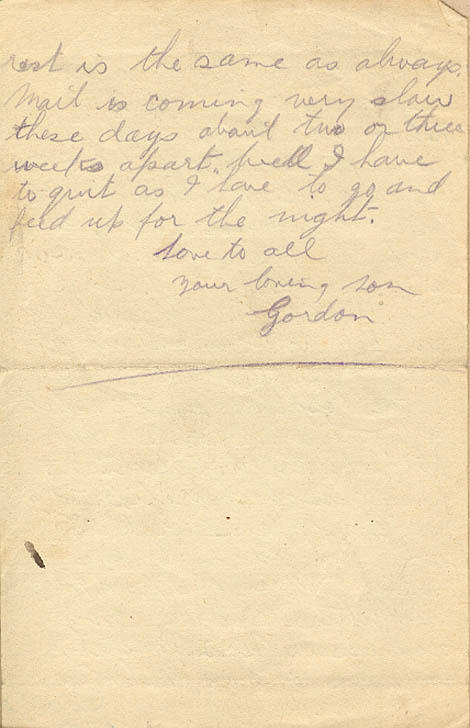 rest is the same as always.
Mail is coming very slow
these days about two or three
weeks apart. Well I have
to quit as I have to go and
feed up for the night.
Love to all
your loving son
Gordon